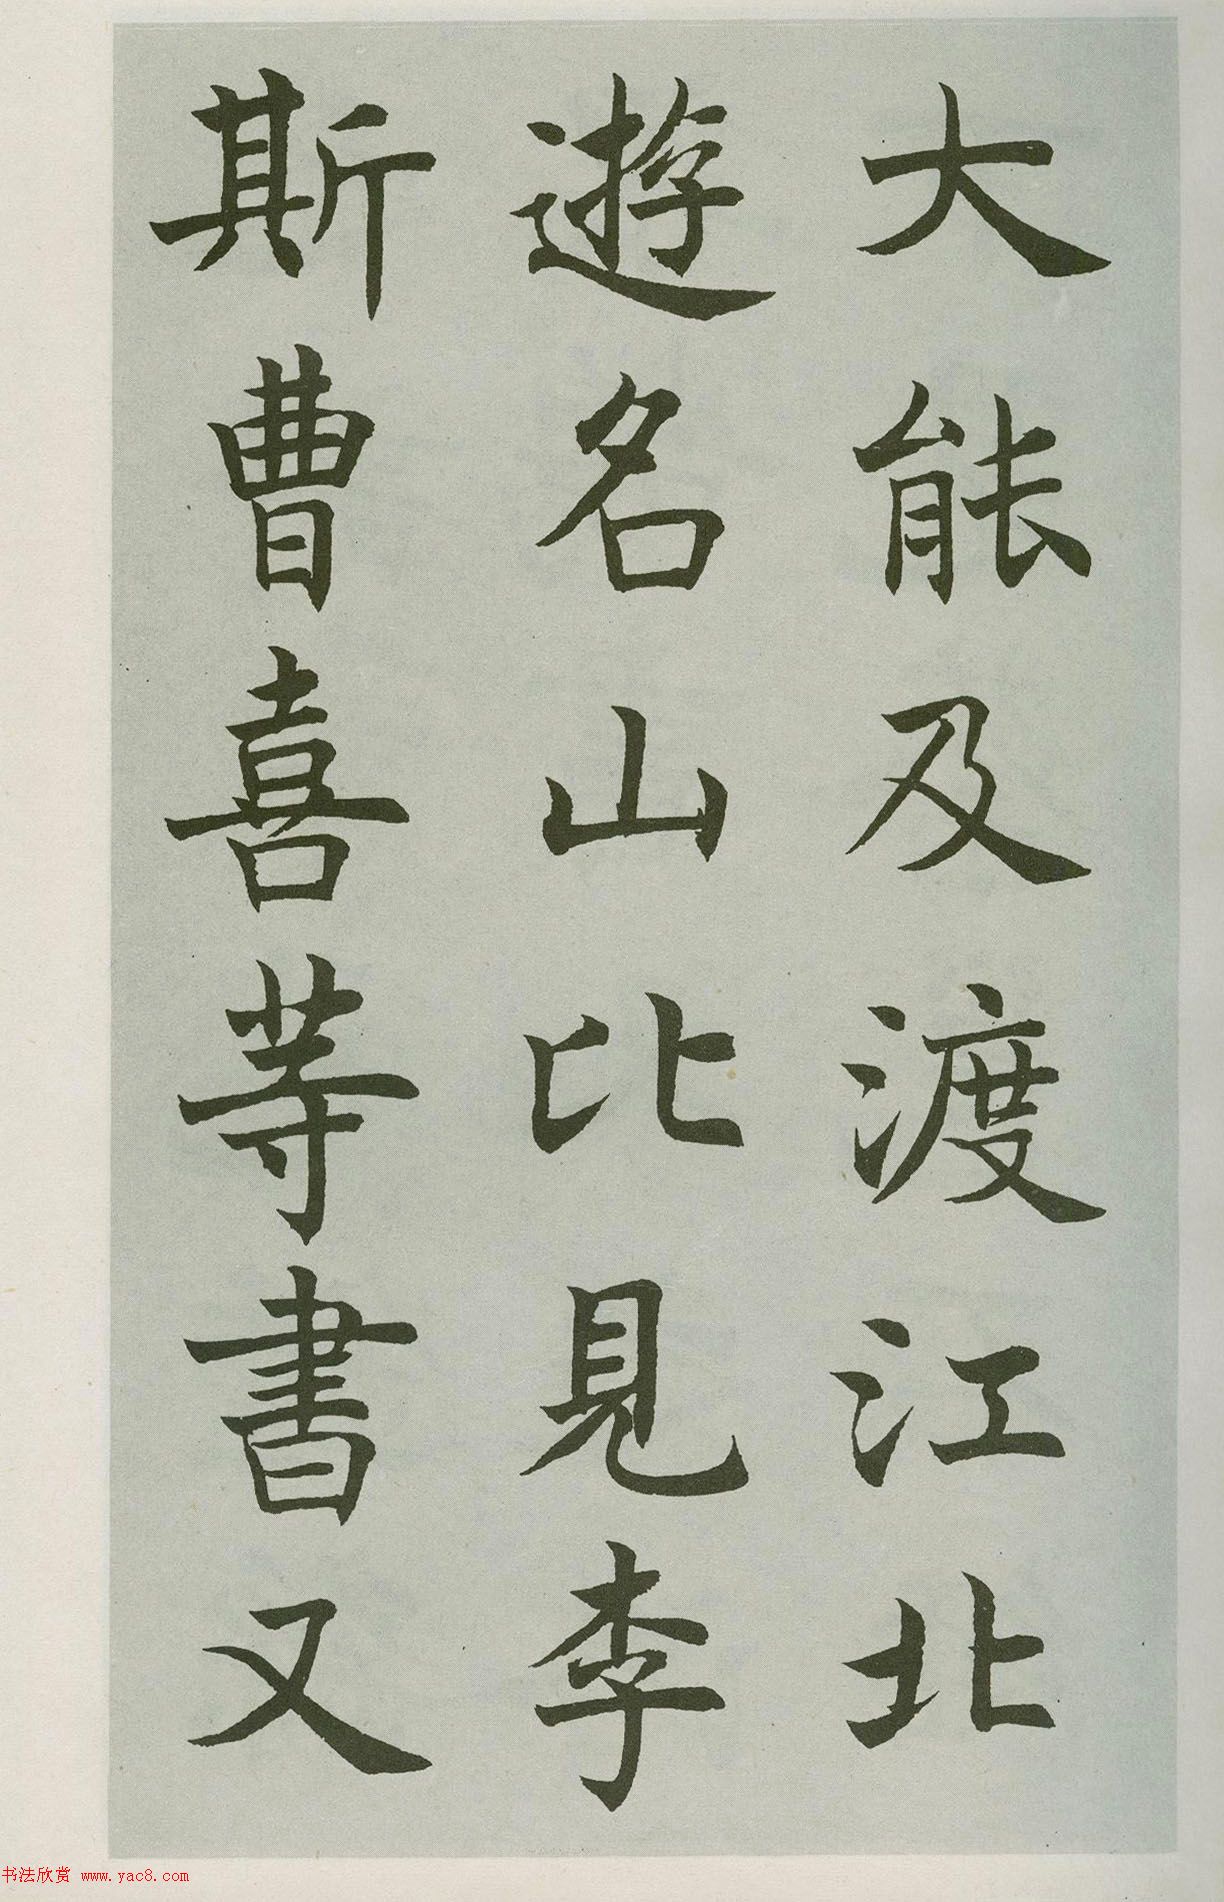 大能及渡江北
遊名山比見李
斯曹喜等書又
书法欣赏 www.yac8.com